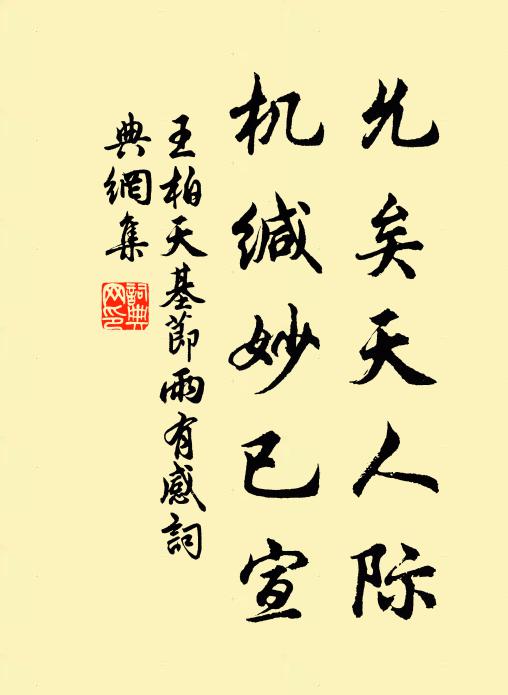 允矣天人际
机缄妙已宣
王柏天基節雨有感詞
典網集
詞典网印